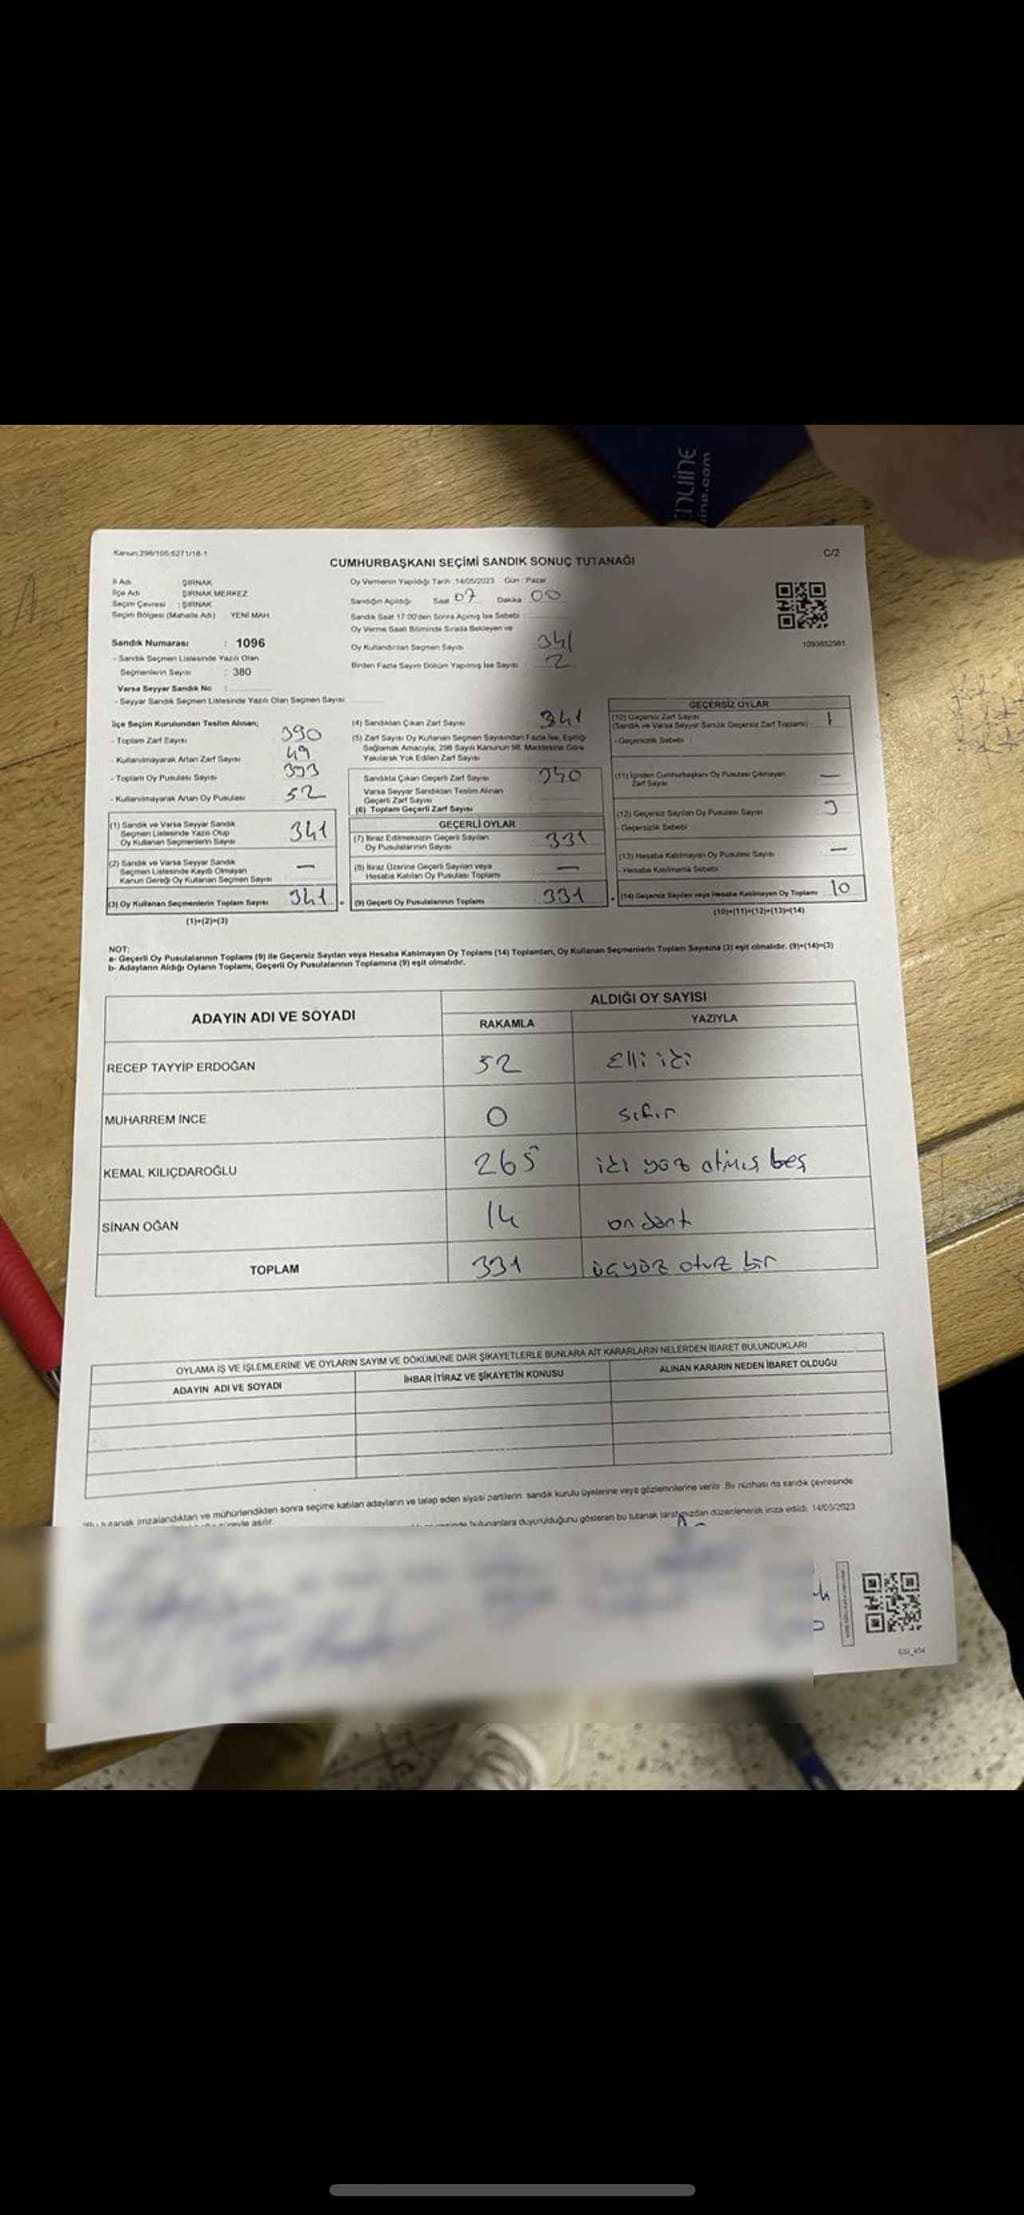 Kanun:298/105;6271/18-1
C/2
CUMHURBAŞKANI SEÇİMİ SANDIK SONUÇ TUTANAĞI
İl Adı : ŞIRNAK
İlçe Adı : ŞIRNAK MERKEZ
Seçim Çevresi : ŞIRNAK
Seçim Bölgesi (Mahalle Adı) : YENİ MAH.
Sandık Numarası : 1096
- Sandık Seçmen Listesinde Yazılı Olan
Seçmenlerin Sayısı : 380
Varsa Seyyar Sandık No :
- Seyyar Sandık Seçmen Listesinde Yazılı Olan Seçmen Sayısı
Oy Vermenin Yapıldığı Tarih :14/05/2023 Gün : Pazar
Sandığın Açıldığı Saat 07 Dakika : 00
Sandık Saat 17:00'den Sonra Açılmış İse Sebebi :
Oy Verme Saati Bitiminde Sırada Bekleyen ve
Oy Kullandırılan Seçmen Sayısı 341
Birden Fazla Sayım Döküm Yapılmış İse Sayısı 2
1093852981
İlçe Seçim Kurulundan Teslim Alınan;
- Toplam Zarf Sayısı 390
- Kullanılmayarak Artan Zarf Sayısı 49
- Toplam Oy Pusulası Sayısı 393
- Kullanılmayarak Artan Oy Pusulası 52
(1) Sandık ve Varsa Seyyar Sandık
Seçmen Listesinde Yazılı Olup
Oy Kullanan Seçmenlerin Sayısı 341
(2) Sandık ve Varsa Seyyar Sandık
Seçmen Listesinde Kaydı Olmayan
Kanun Gereği Oy Kullanan Seçmen Sayısı —
(3) Oy Kullanan Seçmenlerin Toplam Sayısı 341
(1)+(2)=(3)
(4) Sandıktan Çıkan Zarf Sayısı 341
(5) Zarf Sayısı Oy Kullanan Seçmen Sayısından Fazla İse, Eşitliği
Sağlamak Amacıyla, 298 Sayılı Kanunun 98. Maddesine Göre
Yakılarak Yok Edilen Zarf Sayısı
Sandıkta Çıkan Geçerli Zarf Sayısı 340
Varsa Seyyar Sandıktan Teslim Alınan
Geçerli Zarf Sayısı
(6) Toplam Geçerli Zarf Sayısı
GEÇERLİ OYLAR
(7) İtiraz Edilmeksizin Geçerli Sayılan
Oy Pusulalarının Sayısı 331
(8) İtiraz Üzerine Geçerli Sayılan veya
Hesaba Katılan Oy Pusulası Toplamı —
(9) Geçerli Oy Pusulalarının Toplamı 331
GEÇERSİZ OYLAR
(10) Geçersiz Zarf Sayısı
(Sandık ve Varsa Seyyar Sandık Geçersiz Zarf Toplamı) 1
- Geçersizlik Sebebi :
(11) İçinden Cumhurbaşkanı Oy Pusulası Çıkmayan
Zarf Sayısı —
(12) Geçersiz Sayılan Oy Pusulası Sayısı 9
- Geçersizlik Sebebi
(13) Hesaba Katılmayan Oy Pusulası Sayısı —
- Hesaba Katılmama Sebebi
(14) Geçersiz Sayılan veya Hesaba Katılmayan Oy Toplamı 10
(10)+(11)+(12)+(13)=(14)
NOT:
a- Geçerli Oy Pusulalarının Toplamı (9) ile Geçersiz Sayılan veya Hesaba Katılmayan Oy Toplamı (14) Toplamları, Oy Kullanan Seçmenlerin Toplam Sayısına (3) eşit olmalıdır. (9)+(14)=(3)
b- Adayların Aldığı Oyların Toplamı, Geçerli Oy Pusulalarının Toplamına (9) eşit olmalıdır.
ADAYIN ADI VE SOYADI
ALDIĞI OY SAYISI
RAKAMLA YAZIYLA
RECEP TAYYİP ERDOĞAN 52 Elli iki
MUHARREM İNCE 0 sıfır
KEMAL KILIÇDAROĞLU 265 iki yüz atmış beş
SİNAN OĞAN 14 on dört
TOPLAM 331 üçyüz otuz bir
OYLAMA İŞ VE İŞLEMLERİNE VE OYLARIN SAYIM VE DÖKÜMÜNE DAİR ŞİKAYETLERLE BUNLARA AİT KARARLARIN NELERDEN İBARET BULUNDUKLARI
ADAYIN ADI VE SOYADI
İHBAR İTİRAZ VE ŞİKAYETİN KONUSU
ALINAN KARARIN NEDEN İBARET OLDUĞU
tutanak imzalandıktan ve mühürlendikten sonra seçime katılan adayların ve talep eden siyasi partilerin sandık kurulu üyelerine veya gözlemcilerine verilir. Bu nüshası da sandık çevresinde
bulunanlara duyurulduğunu gösteren bu tutanak tarafımızdan düzenlenerek imza edildi. 14/05/2023